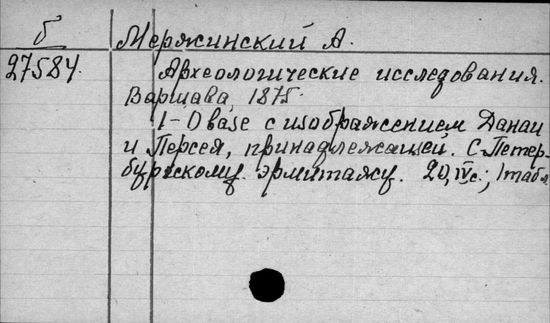 Б Мержинский А.
27584. Археологические исследования.
Варшава, 1875.
1-О вазе с изображением Данаи
и Персея, принадлежащей. С.Петер-
бургскому эрмитажу. 20, IVс.; 1 табл